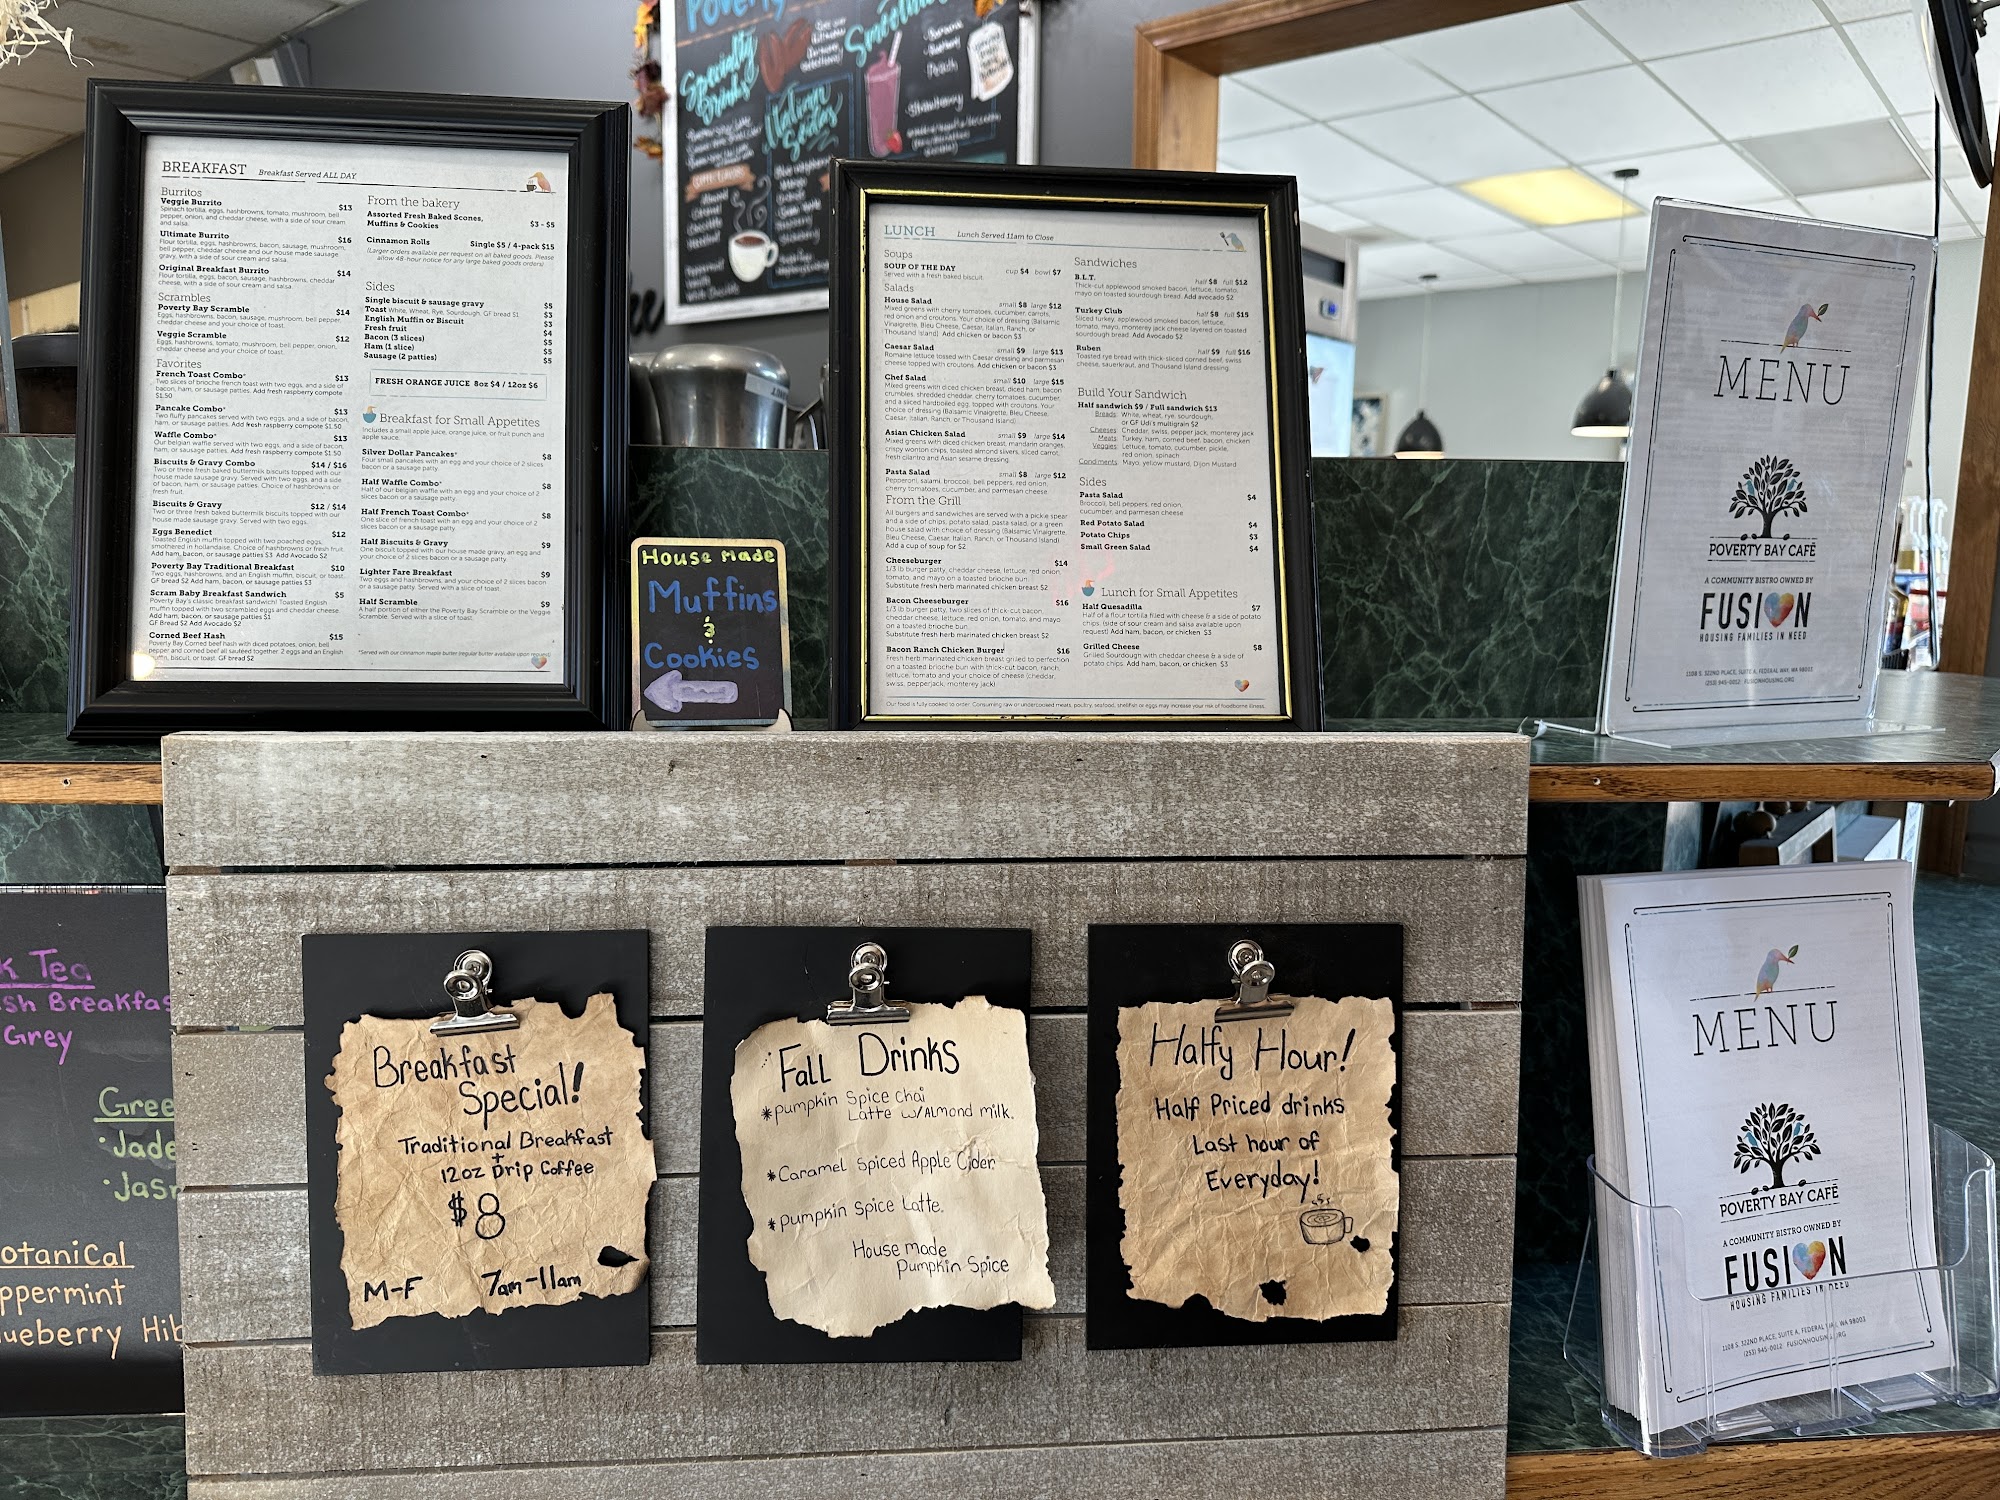 BREAKFAST Breakfast Served ALL DAY
Burritos
Veggie Burrito $13
Spinach tortilla, eggs, hashbrowns, tomato, mushroom, bell
pepper, onion, and cheddar cheese, with a side of sour cream
and salsa.
Ultimate Burrito $16
Flour tortilla, eggs, hashbrowns, bacon, sausage, mushroom,
bell pepper, cheddar cheese and our house made sausage
gravy, with a side of sour cream and salsa.
Original Breakfast Burrito $14
Flour tortilla, eggs, bacon, sausage, hashbrowns, cheddar
cheese, with a side of sour cream and salsa.
Scrambles
Poverty Bay Scramble $14
Eggs, hashbrowns, bacon, sausage, mushroom, bell pepper,
cheddar cheese and your choice of toast.
Veggie Scramble $12
Eggs, hashbrowns, tomato, mushroom, bell pepper, onion,
cheddar cheese and your choice of toast.
Favorites
French Toast Combo* $13
Two slices of brioche french toast with two eggs, and a side of
bacon, ham, or sausage patties. Add fresh raspberry compote
$1.50
Pancake Combo* $13
Two fluffy pancakes served with two eggs, and a side of bacon,
ham, or sausage patties. Add fresh raspberry compote $1.50
Waffle Combo* $13
Our belgian waffle served with two eggs, and a side of bacon,
ham, or sausage patties. Add fresh raspberry compote $1.50
Biscuits & Gravy Combo $14 / $16
Two or three fresh baked buttermilk biscuits topped with our
house made sausage gravy. Served with two eggs, and a side
of bacon, ham, or sausage patties. Choice of hashbrowns or
fresh fruit.
Biscuits & Gravy $12 / $14
Two or three fresh baked buttermilk biscuits topped with our
house made sausage gravy. Served with two eggs.
Eggs Benedict $12
Toasted English muffin topped with two poached eggs,
smothered in hollandaise. Choice of hashbrowns or fresh fruit.
Add ham, bacon, or sausage patties $3 Add Avocado $2
Poverty Bay Traditional Breakfast $10
Two eggs, hashbrowns, and an English muffin, biscuit, or toast.
GF bread $2 Add ham, bacon, or sausage patties $3
Scram Baby Breakfast Sandwich $5
Poverty Bay's classic breakfast sandwich! Toasted English
muffin topped with two scrambled eggs and cheddar cheese.
Add ham, bacon, or sausage patties $1
GF Bread $2 Add Avocado $2
Corned Beef Hash $15
Poverty Bay Corned beef hash with diced potatoes, onion, bell
pepper and corned beef all sautéed together. 2 eggs and an English
muffin, biscuit, or toast. GF bread $2
From the bakery
Assorted Fresh Baked Scones,
Muffins & Cookies $3 - $5
Cinnamon Rolls Single $5 / 4-pack $15
(Larger orders available per request on all baked goods. Please
allow 48-hour notice for any large baked goods orders)
Sides
Single biscuit & sausage gravy $5
Toast White, Wheat, Rye, Sourdough, GF bread $1 $3
English Muffin or Biscuit $3
Fresh fruit $4
Bacon (3 slices) $5
Ham (1 slice) $5
Sausage (2 patties) $5
FRESH ORANGE JUICE 8oz $4 / 12oz $6
Breakfast for Small Appetites
Includes a small apple juice, orange juice, or fruit punch and
apple sauce.
Silver Dollar Pancakes* $8
Four small pancakes with an egg and your choice of 2 slices
bacon or a sausage patty.
Half Waffle Combo* $8
Half of our belgian waffle with an egg and your choice of 2
slices bacon or a sausage patty.
Half French Toast Combo* $8
One slice of french toast with an egg and your choice of 2
slices bacon or a sausage patty.
Half Biscuits & Gravy $9
One biscuit topped with our house made gravy, an egg and
your choice of 2 slices bacon or a sausage patty.
Lighter Fare Breakfast $9
Two eggs and hashbrowns, and your choice of 2 slices bacon
or a sausage patty. Served with a slice of toast.
Half Scramble $9
A half portion of either the Poverty Bay Scramble or the Veggie
Scramble. Served with a slice of toast.
*Served with our cinnamon maple butter (regular butter available upon request)
House Made
Muffins
&
Cookies
Specialty
Drinks
Italian
Sodas
Peach
Strawberry
LUNCH Lunch Served 11am to Close
Soups
SOUP OF THE DAY cup $4 bowl $7
Served with a fresh baked biscuit.
Salads
House Salad small $8 large $12
Mixed greens with cherry tomatoes, cucumber, carrots,
red onion and croutons. Your choice of dressing (Balsamic
Vinaigrette, Bleu Cheese, Caesar, Italian, Ranch, or
Thousand Island) Add chicken or bacon $3
Caesar Salad small $9 large $13
Romaine lettuce tossed with Caesar dressing and parmesan
cheese topped with croutons. Add chicken or bacon $3
Chef Salad small $10 large $15
Mixed greens with diced chicken breast, diced ham, bacon
crumbles, shredded cheddar, cherry tomatoes, cucumber,
and a sliced hardboiled egg, topped with croutons. Your
choice of dressing (Balsamic Vinaigrette, Bleu Cheese,
Caesar, Italian, Ranch, or Thousand Island)
Asian Chicken Salad small $9 large $14
Mixed greens with diced chicken breast, mandarin oranges,
crispy wonton chips, toasted almond slivers, sliced carrot,
fresh cilantro and Asian sesame dressing.
Pasta Salad small $8 large $12
Pepperoni, salami, broccoli, bell peppers, red onion,
cherry tomatoes, cucumber, and parmesan cheese
From the Grill
All burgers and sandwiches are served with a pickle spear
and a side of chips, potato salad, pasta salad, or a green
house salad with choice of dressing (Balsamic Vinaigrette,
Bleu Cheese, Caesar, Italian, Ranch, or Thousand Island)
Add a cup of soup for $2
Cheeseburger $14
1/3 lb burger patty, cheddar cheese, lettuce, red onion,
tomato, and mayo on a toasted brioche bun
Substitute fresh herb marinated chicken breast $2
Bacon Cheeseburger $16
1/3 lb burger patty, two slices of thick-cut bacon,
cheddar cheese, lettuce, red onion, tomato, and mayo
on a toasted brioche bun.
Substitute fresh herb marinated chicken breast $2
Bacon Ranch Chicken Burger $16
Fresh herb marinated chicken breast grilled to perfection
on a toasted brioche bun with thick-cut bacon, ranch,
lettuce, tomato and your choice of cheese (cheddar,
swiss, pepperjack, monterey jack)
Sandwiches
B.L.T. half $8 full $12
Thick-cut applewood smoked bacon, lettuce, tomato,
mayo on toasted sourdough bread. Add avocado $2
Turkey Club half $8 full $15
Sliced turkey, applewood smoked bacon, lettuce,
tomato, mayo, monterey jack cheese layered on toasted
sourdough bread. Add Avocado $2
Ruben half $9 full $16
Toasted rye bread with thick-sliced corned beef, swiss
cheese, sauerkraut, and Thousand Island dressing.
Build Your Sandwich
Half sandwich $9 / Full sandwich $13
Breads: White, wheat, rye, sourdough,
or GF Udi's multigrain $2
Cheeses: Cheddar, swiss, pepper jack, monterey jack
Meats: Turkey, ham, corned beef, bacon, chicken
Veggies: Lettuce, tomato, cucumber, pickle,
red onion, spinach
Condiments: Mayo, yellow mustard, Dijon Mustard
Sides
Pasta Salad $4
Broccoli, bell peppers, red onion,
cucumber, and parmesan cheese
Red Potato Salad $4
Potato Chips $3
Small Green Salad $4
Lunch for Small Appetites
Half Quesadilla $7
Half of a flour tortilla filled with cheese & a side of potato
chips. (side of sour cream and salsa available upon
request) Add ham, bacon, or chicken $3
Grilled Cheese $8
Grilled Sourdough with cheddar cheese & a side of
potato chips. Add ham, bacon, or chicken $3
Our food is fully cooked to order. Consuming raw or undercooked meats, poultry, seafood, shellfish or eggs may increase your risk of foodborne illness.
MENU
POVERTY BAY CAFÉ
A COMMUNITY BISTRO OWNED BY
FUSION
HOUSING FAMILIES IN NEED
1108 S. 322ND PLACE, SUITE A, FEDERAL WAY, WA 98003
(253) 945-0012 FUSIONHOUSING.ORG
k Tea
sh Breakfas
Grey
Gree
·Jade
·Jasm
otanical
ppermint
lueberry Hib
Breakfast
Special!
Traditional Breakfast
+
12oz Drip Coffee
$8
M-F 7am-11am
Fall Drinks
*pumpkin Spice chai
Latte w/Almond milk.
*Caramel Spiced Apple Cider
*pumpkin Spice Latte.
House made
Pumpkin Spice
Halfy Hour!
Half Priced drinks
Last hour of
Everyday!
MENU
POVERTY BAY CAFÉ
A COMMUNITY BISTRO OWNED BY
FUSION
HOUSING FAMILIES IN NEED
1108 S. 322ND PLACE, SUITE A, FEDERAL WAY, WA 98003
(253) 945-0012 FUSIONHOUSING.ORG